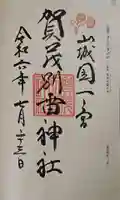 山城国一宮
賀茂別雷神社
令和六年七月二十三日